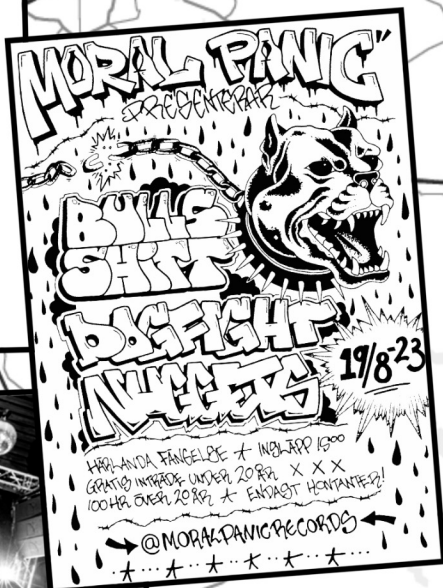 MORAL PANIC"
PRESENTERAR
BULLS
SHITT
DOGFIGHT
NUGGETS
19/8-23
HÄRLANDA FÄNGELSE ★ INSLÄPP 1500
GRATIS INTRÄDE UNDER 20 ÅR X X X
100 KR ÖVER 20 ÅR ★ ENDAST KONTANTER!
@MORALPANICRECORDS